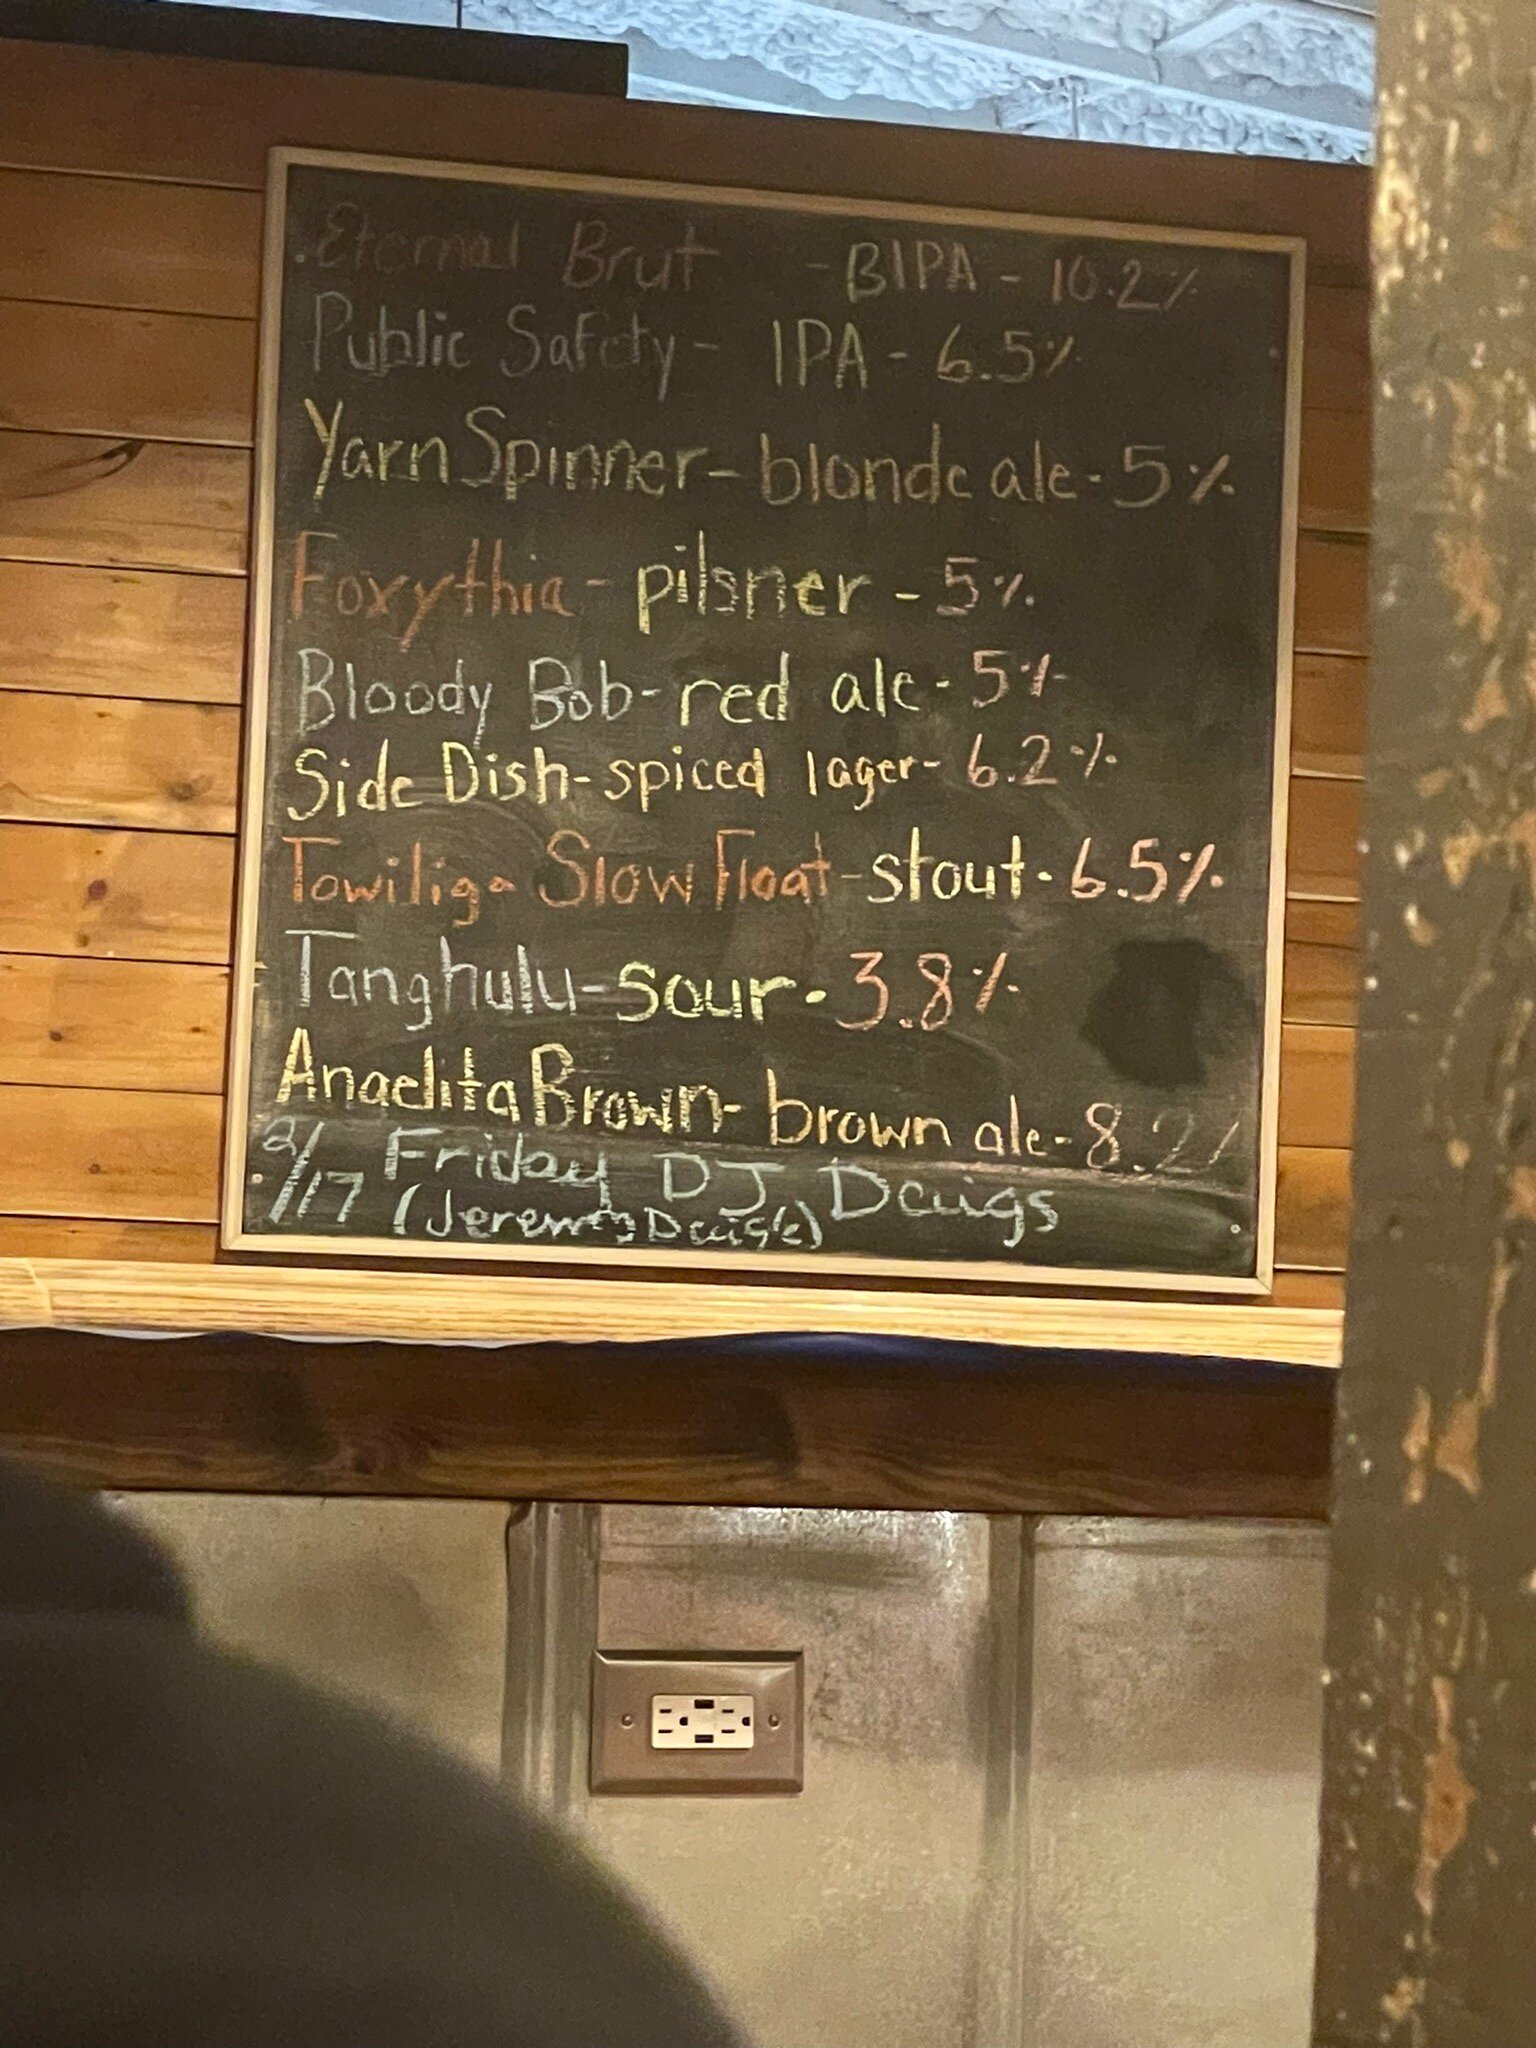 Eternal Brut - BIPA - 10.2%
Public Safety - IPA - 6.5%
Yarn Spinner - blonde ale - 5%
Foxythia - pilsner - 5%
Bloody Bob - red ale - 5%
Side Dish - spiced lager - 6.2%
Towiliga Slow Float - stout - 6.5%
Tanghulu - sour - 3.8%
Anaelita Brown - brown ale - 8.2%
2/17 Friday DJ Daigs
(Jeremy Daigle)